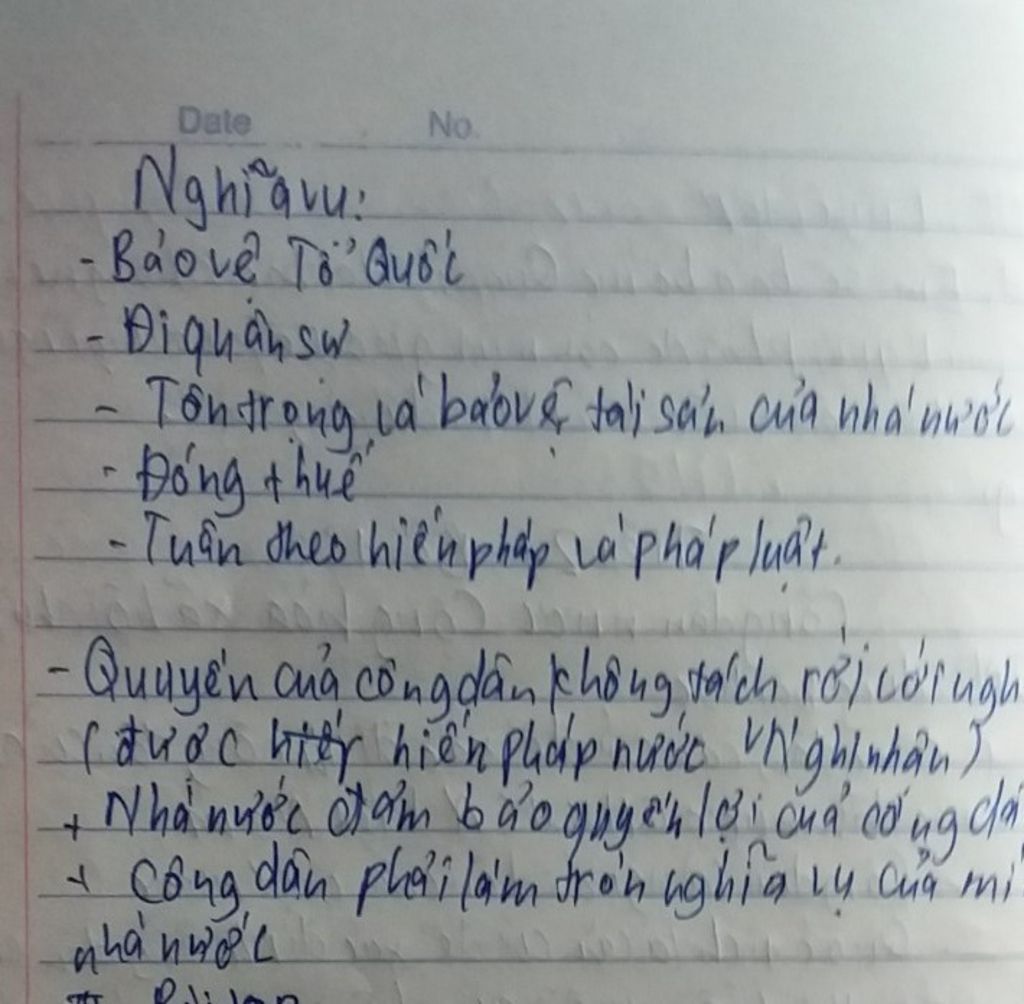 Date No.
Nghĩa vụ:
- Bảo vệ Tổ Quốc
- Đi quân sự
- Tôn trọng và bảo vệ tài sản của nhà nước
- Đóng thuế
- Tuân theo hiến pháp và pháp luật.
- Quuyền của công dân không tách rời với ngh
(được hiến pháp nước VN ghi nhân)
+ Nhà nước đảm bảo quyền lợi của công dâ
+ Công dân phải làm tròn nghĩa vụ của mì
nhà nước